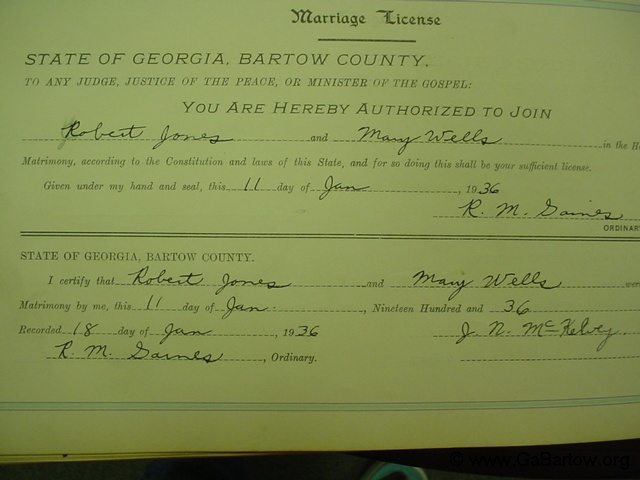 Marriage License
STATE OF GEORGIA, BARTOW COUNTY.
TO ANY JUDGE, JUSTICE OF THE PEACE, OR MINISTER OF THE GOSPEL:
YOU ARE HEREBY AUTHORIZED TO JOIN
Robert Jones and Mary Wells in the H
Matrimony, according to the Constitution and laws of this State, and for so doing this shall be your sufficient license.
Given under my hand and seal, this 11 day of Jan, 1936
R. M. Gaines
ORDINAR
STATE OF GEORGIA, BARTOW COUNTY.
I certify that Robert Jones and Mary Wells wer
Matrimony by me, this 11 day of Jan., Nineteen Hundred and 36
Recorded 18 day of Jan, 1936 J. N. McKelvey
R. M. Gaines, Ordinary.
© www.GaBartow.org